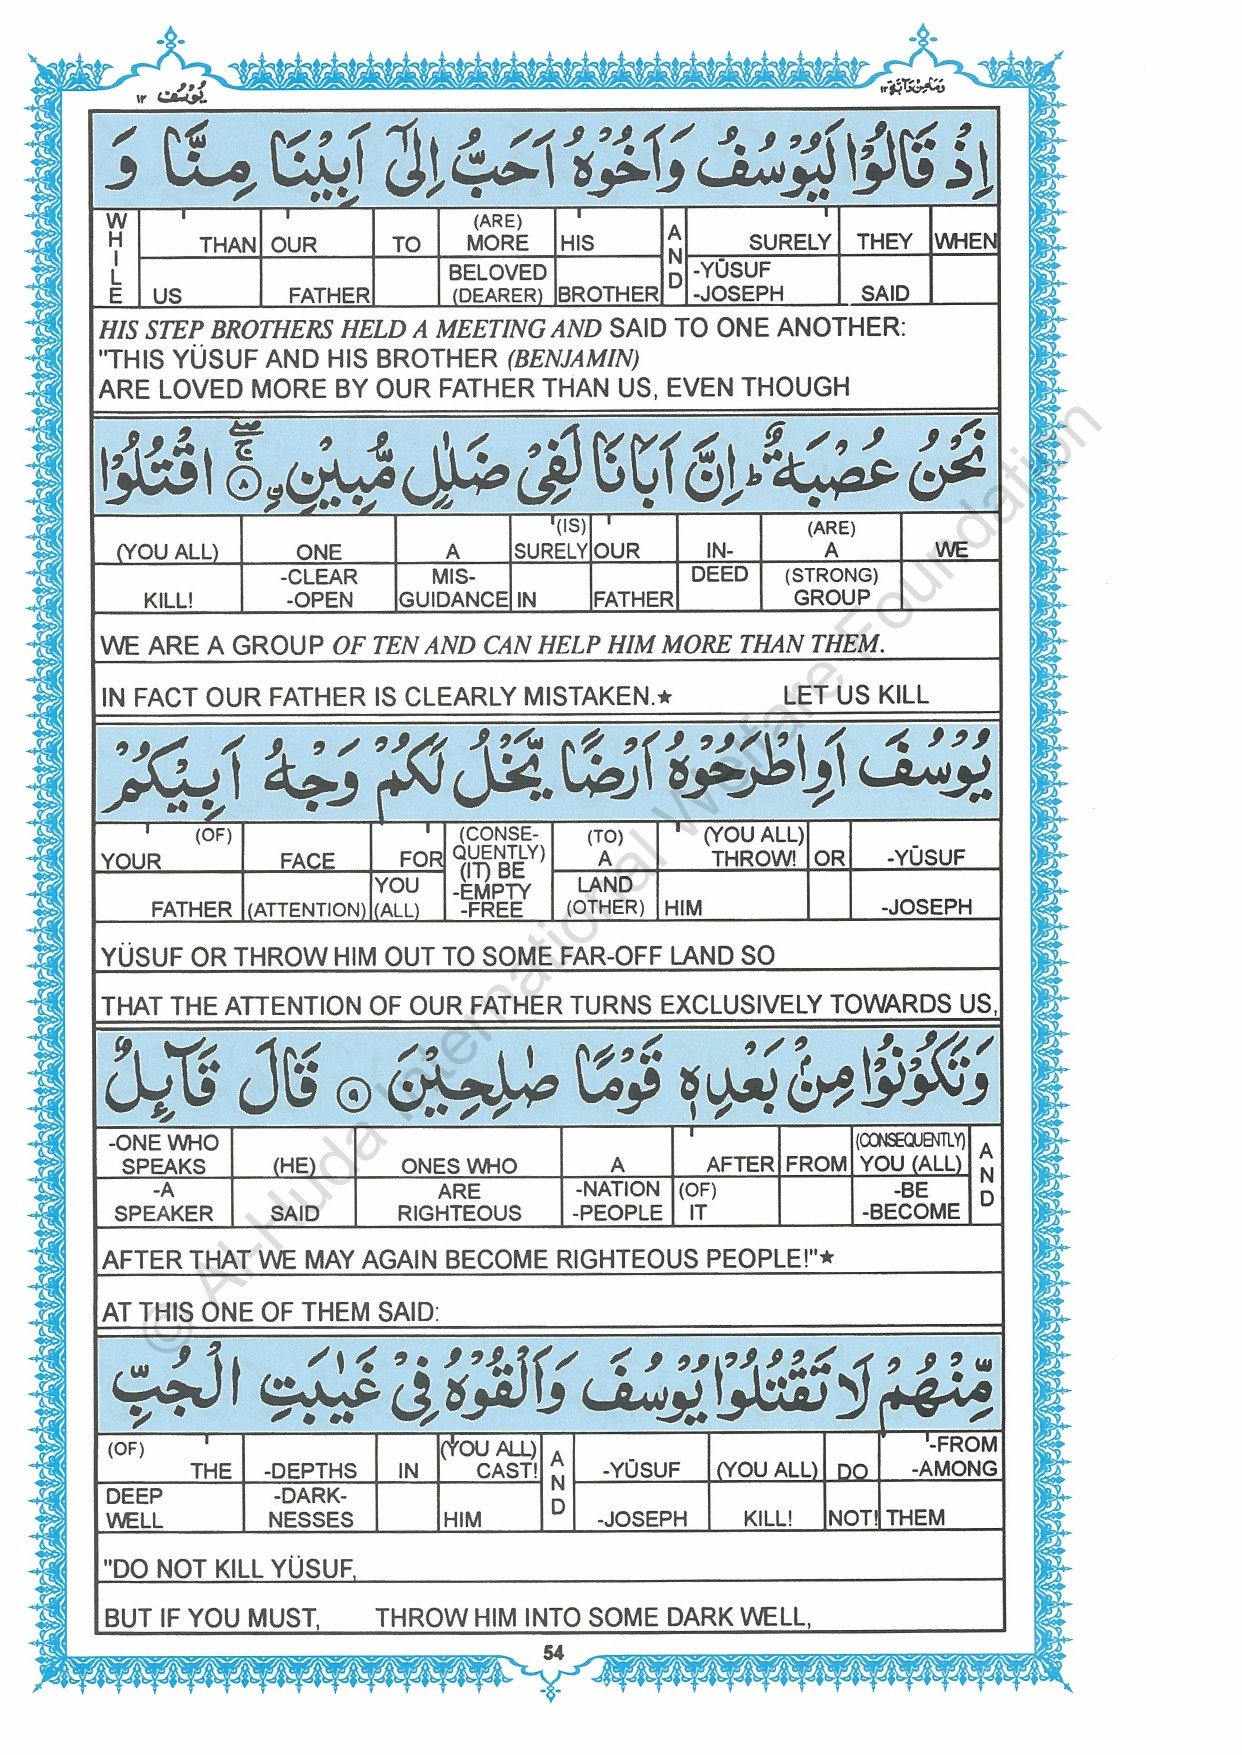 يُوْسُف ١٢
وَمَا مِنْ دَآبَّة ١٢
اِذْ قَالُوْا لَيُوْسُفُ وَاَخُوْهُ اَحَبُّ اِلٰٓى اَبِيْنَا مِنَّا وَ
WHILE THAN OUR TO (ARE) MORE HIS AND SURELY THEY WHEN
US FATHER BELOVED (DEARER) BROTHER -YŪSUF -JOSEPH SAID
HIS STEP BROTHERS HELD A MEETING AND SAID TO ONE ANOTHER:
"THIS YÜSUF AND HIS BROTHER (BENJAMIN)
ARE LOVED MORE BY OUR FATHER THAN US, EVEN THOUGH
نَحْنُ عُصْبَةٌ ؕ اِنَّ اَبَانَا لَفِيْ ضَلٰلٍ مُّبِيْنِ ۨ ۚۖ ٨ اقْتُلُوْا
(YOU ALL) ONE A (IS) SURELY OUR IN- (ARE) A WE
KILL! -CLEAR -OPEN MIS- GUIDANCE IN FATHER DEED (STRONG) GROUP
WE ARE A GROUP OF TEN AND CAN HELP HIM MORE THAN THEM.
IN FACT OUR FATHER IS CLEARLY MISTAKEN.★ LET US KILL
يُوْسُفَ اَوِ اطْرَحُوْهُ اَرْضًا يَّخْلُ لَكُمْ وَجْهُ اَبِيْكُمْ
YOUR (OF) FACE FOR (CONSE- QUENTLY) (IT) BE -EMPTY -FREE (TO) A (YOU ALL) THROW! OR -YŪSUF
FATHER (ATTENTION) YOU (ALL) LAND (OTHER) HIM -JOSEPH
YÜSUF OR THROW HIM OUT TO SOME FAR-OFF LAND SO
THAT THE ATTENTION OF OUR FATHER TURNS EXCLUSIVELY TOWARDS US,
وَتَكُوْنُوْا مِنْۢ بَعْدِهٖ قَوْمًا صٰلِحِيْنَ ٩ قَالَ قَآئِلٌ
-ONE WHO SPEAKS (HE) ONES WHO A AFTER FROM (CONSEQUENTLY) YOU (ALL) AND
-A SPEAKER SAID ARE RIGHTEOUS -NATION -PEOPLE (OF) IT -BE -BECOME
AFTER THAT WE MAY AGAIN BECOME RIGHTEOUS PEOPLE!"★
AT THIS ONE OF THEM SAID:
مِّنْهُمْ لَا تَقْتُلُوْا يُوْسُفَ وَاَلْقُوْهُ فِيْ غَيٰبَتِ الْجُبِّ
(OF) THE -DEPTHS IN (YOU ALL) CAST! AND -YŪSUF (YOU ALL) DO -FROM -AMONG
DEEP WELL -DARK- NESSES HIM -JOSEPH KILL! NOT! THEM
"DO NOT KILL YÜSUF,
BUT IF YOU MUST, THROW HIM INTO SOME DARK WELL,
54
© Al-Huda International Welfare Foundation